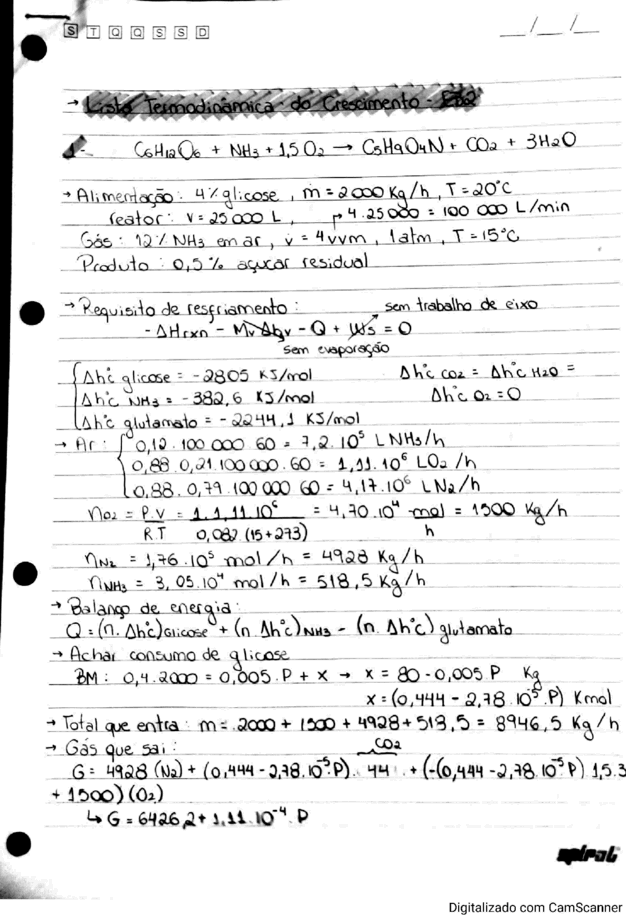 S T Q Q S S D
__/__/__
→ Lista Termodinâmica do Crescimento -
1- C6H12O6 + NH3 + 1,5 O2 → C5H9O4N + CO2 + 3H2O
→ Alimentação: 4% glicose, ṁ = 2000 Kg/h, T = 20°C
reator: V = 25 000 L, → 4.25 000 = 100 000 L/min
Gás: 12% NH3 em ar, v̇ = 4vvm, 1atm, T = 15°C
Produto: 0,5% açucar residual
→ Requisito de resfriamento: sem trabalho de eixo
- ΔHrxn - Mv Δhv - Q + Ws = 0
sem evaporação
Δh°c glicose = -2805 KJ/mol Δh°c CO2 = Δh°c H2O =
Δh°c NH3 = -382,6 KJ/mol Δh°c O2 = 0
Δh°c glutamato = -2244,1 KJ/mol
→ Ar: 0,12 . 100 000 60 = 7,2. 10⁵ L NH3/h
0,88. 0,21. 100 000 . 60 = 1,11. 10⁶ L O2 /h
0,88. 0,79. 100 000 60 = 4,17. 10⁶ L N2/h
nO2 = P.V / R.T = 1. 1,11. 10⁶ / 0,082 (15+273) = 4,70. 10⁴ mol/h = 1500 Kg/h
nN2 = 1,76. 10⁵ mol/h = 4928 Kg/h
nNH3 = 3, 05. 10⁴ mol/h = 518,5 Kg/h
→ Balanço de energia:
Q = (n. Δh°c)Glicose + (n Δh°c)NH3 - (n. Δh°c) glutamato
→ Achar consumo de glicose
BM: 0,4. 2000 = 0,005. P + x → x = 80 - 0,005. P Kg
x = (0,444 - 2,78. 10⁻⁵. P) Kmol
→ Total que entra: m = 2000 + 1500 + 4928 + 518,5 = 8946,5 Kg/h
→ Gás que sai: CO2
G = 4928 (N2) + (0,444 - 2,78. 10⁻⁵. P). 44 . + (-(0,444 - 2,78. 10⁻⁵ P) 1,5.3
+ 1500) (O2)
↳ G = 6426,2 + 1,11. 10⁻⁴. P
spiral
Digitalizado com CamScanner